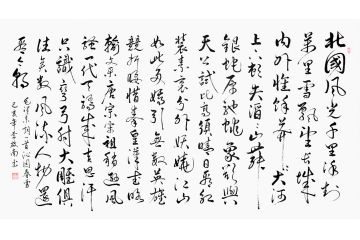 北國風光千里冰封
萬里雪飄望長城
内外惟餘莽莽大河
上下頓失滔滔山舞
銀蛇原馳蠟象欲與
天公試比高須晴日看紅
裝素裹分外妖嬈江山
如此多嬌引無數英雄
競折腰惜秦皇漢武略
輸文采唐宗宋祖稍遜風
騷一代天驕成吉思汗
只識彎弓射大雕俱
往矣數風流人物還
看今朝
毛澤東詞一首沁園春雪
己亥年李